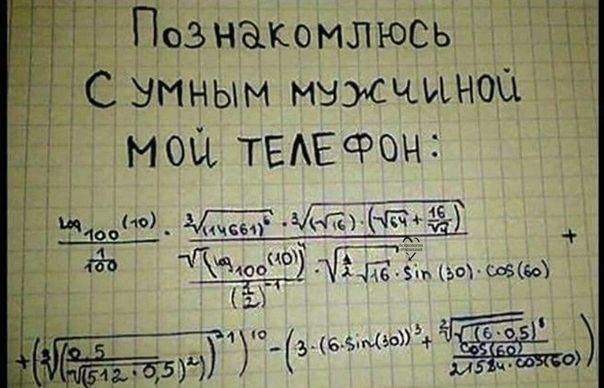 Познакомлюсь
с умным мужчиной
мой телефон:
log₁₀₀(10) / (1/100) · ³√(114661)⁶ · ³√((√16)·(√64 + 16/√4)) / (√(log₁₀₀(10))⁴ / (1/2)⁻¹ · √(1/2 √16 · sin(30) · cos(60))) +
+(³√((0,5 / √(512·0,5)²))²¹)¹⁰ − (3·(6·sin(30))³ + ³√(√(6·0,5)⁸ / cos(60)) / 21584·cos(60))